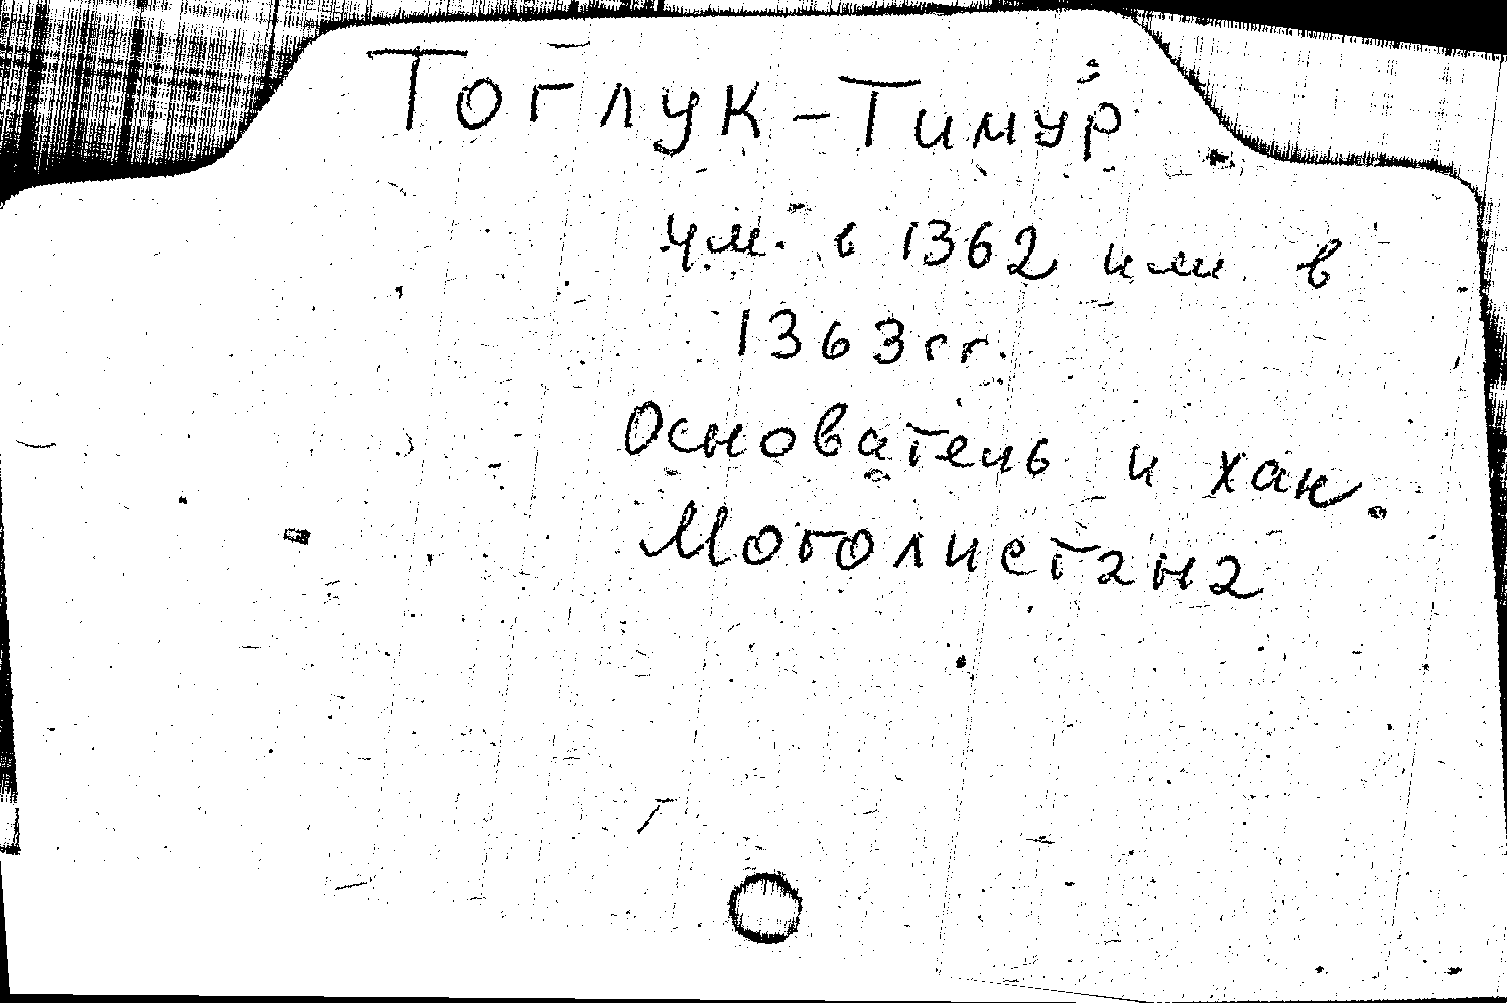 Тоглук-Тимур
ум. в 1362 или в
1363 гг.
Основатель и хан.
Моголистана